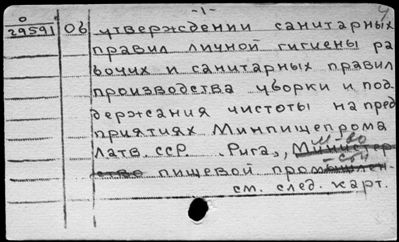 -1-
29591 Об утверждении санитарных
правил личной гигиены ра
бочих и санитарных правил
производства уборки и под
держания чистоты на пред
приятиях Минпищепрома
Латв. ССР. Рига, М-во
пищевой пром-сти
см. след. карт.